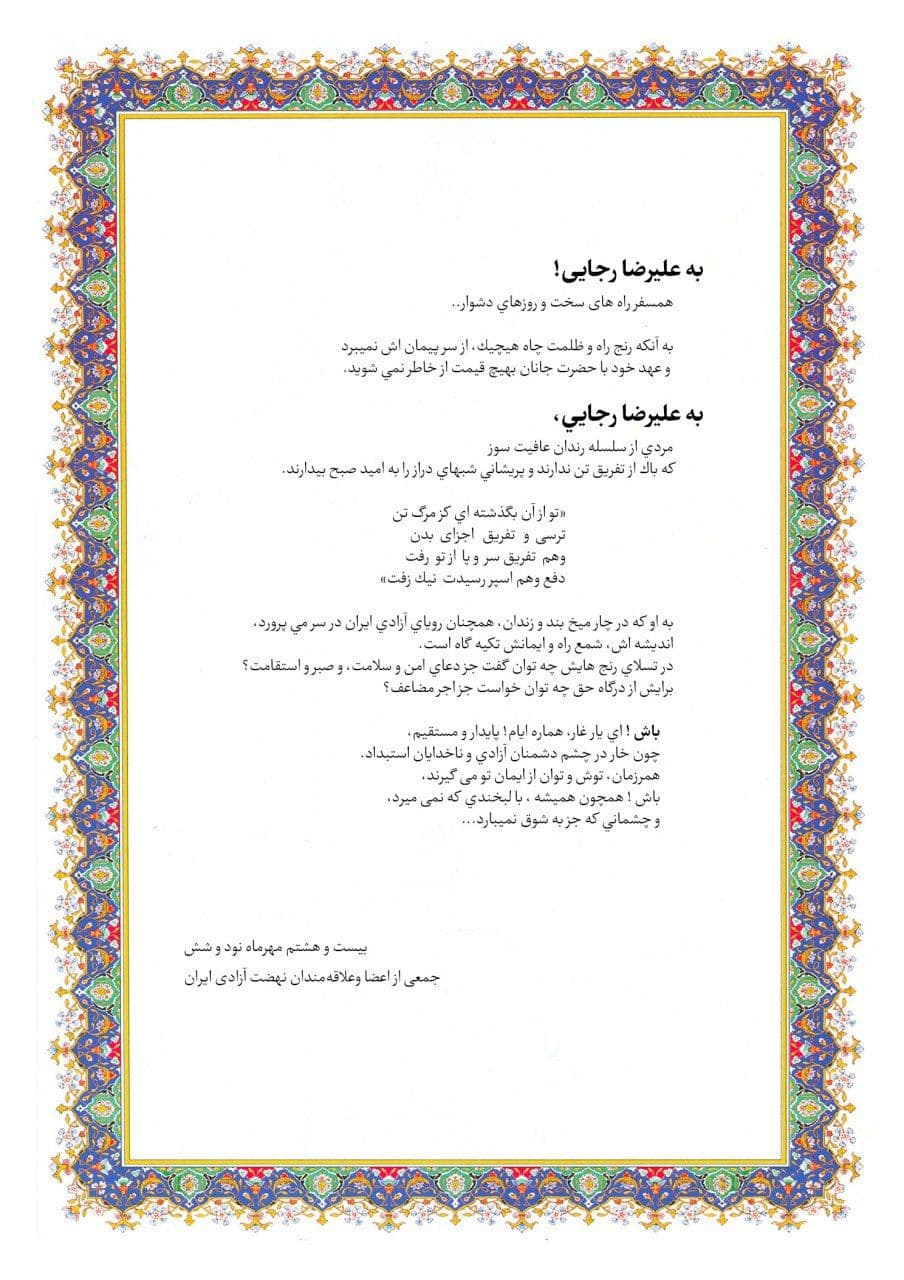 به علیرضا رجایی!
همسفر راه های سخت و روزهاي دشوار..
به آنکه رنج راه و ظلمت چاه هیچیك، از سر پیمان اش نمیبرد
و عهد خود با حضرت جانان بهیچ قیمت از خاطر نمي شوید.
به علیرضا رجایي،
مردي از سلسله رندان عافیت سوز
که باك از تفریق تن ندارند و پریشاني شبهاي دراز را به امید صبح بیدارند.
«تو از آن بگذشته اي کز مرگ تن
ترسی و تفریق اجزای بدن
وهم تفریق سر و پا از تو رفت
دفع وهم اسپر رسیدت نیك زفت»
به او که در چار میخ بند و زندان، همچنان رویاي آزادي ایران در سر مي پرورد،
اندیشه اش، شمع راه و ایمانش تکیه گاه است.
در تسلاي رنج هایش چه توان گفت جز دعاي امن و سلامت، و صبر و استقامت؟
برایش از درگاه حق چه توان خواست جز اجر مضاعف؟
باش ! اي یار غار، هماره ایام! پایدار و مستقیم،
چون خار در چشم دشمنان آزادي و ناخدایان استبداد.
همرزمان، توش و توان از ایمان تو می گیرند،
باش ! همچون همیشه ، با لبخندي که نمی میرد،
و چشماني که جز به شوق نمیبارد...
بیست و هشتم مهرماه نود و شش
جمعی از اعضا وعلاقه‌مندان نهضت آزادی ایران